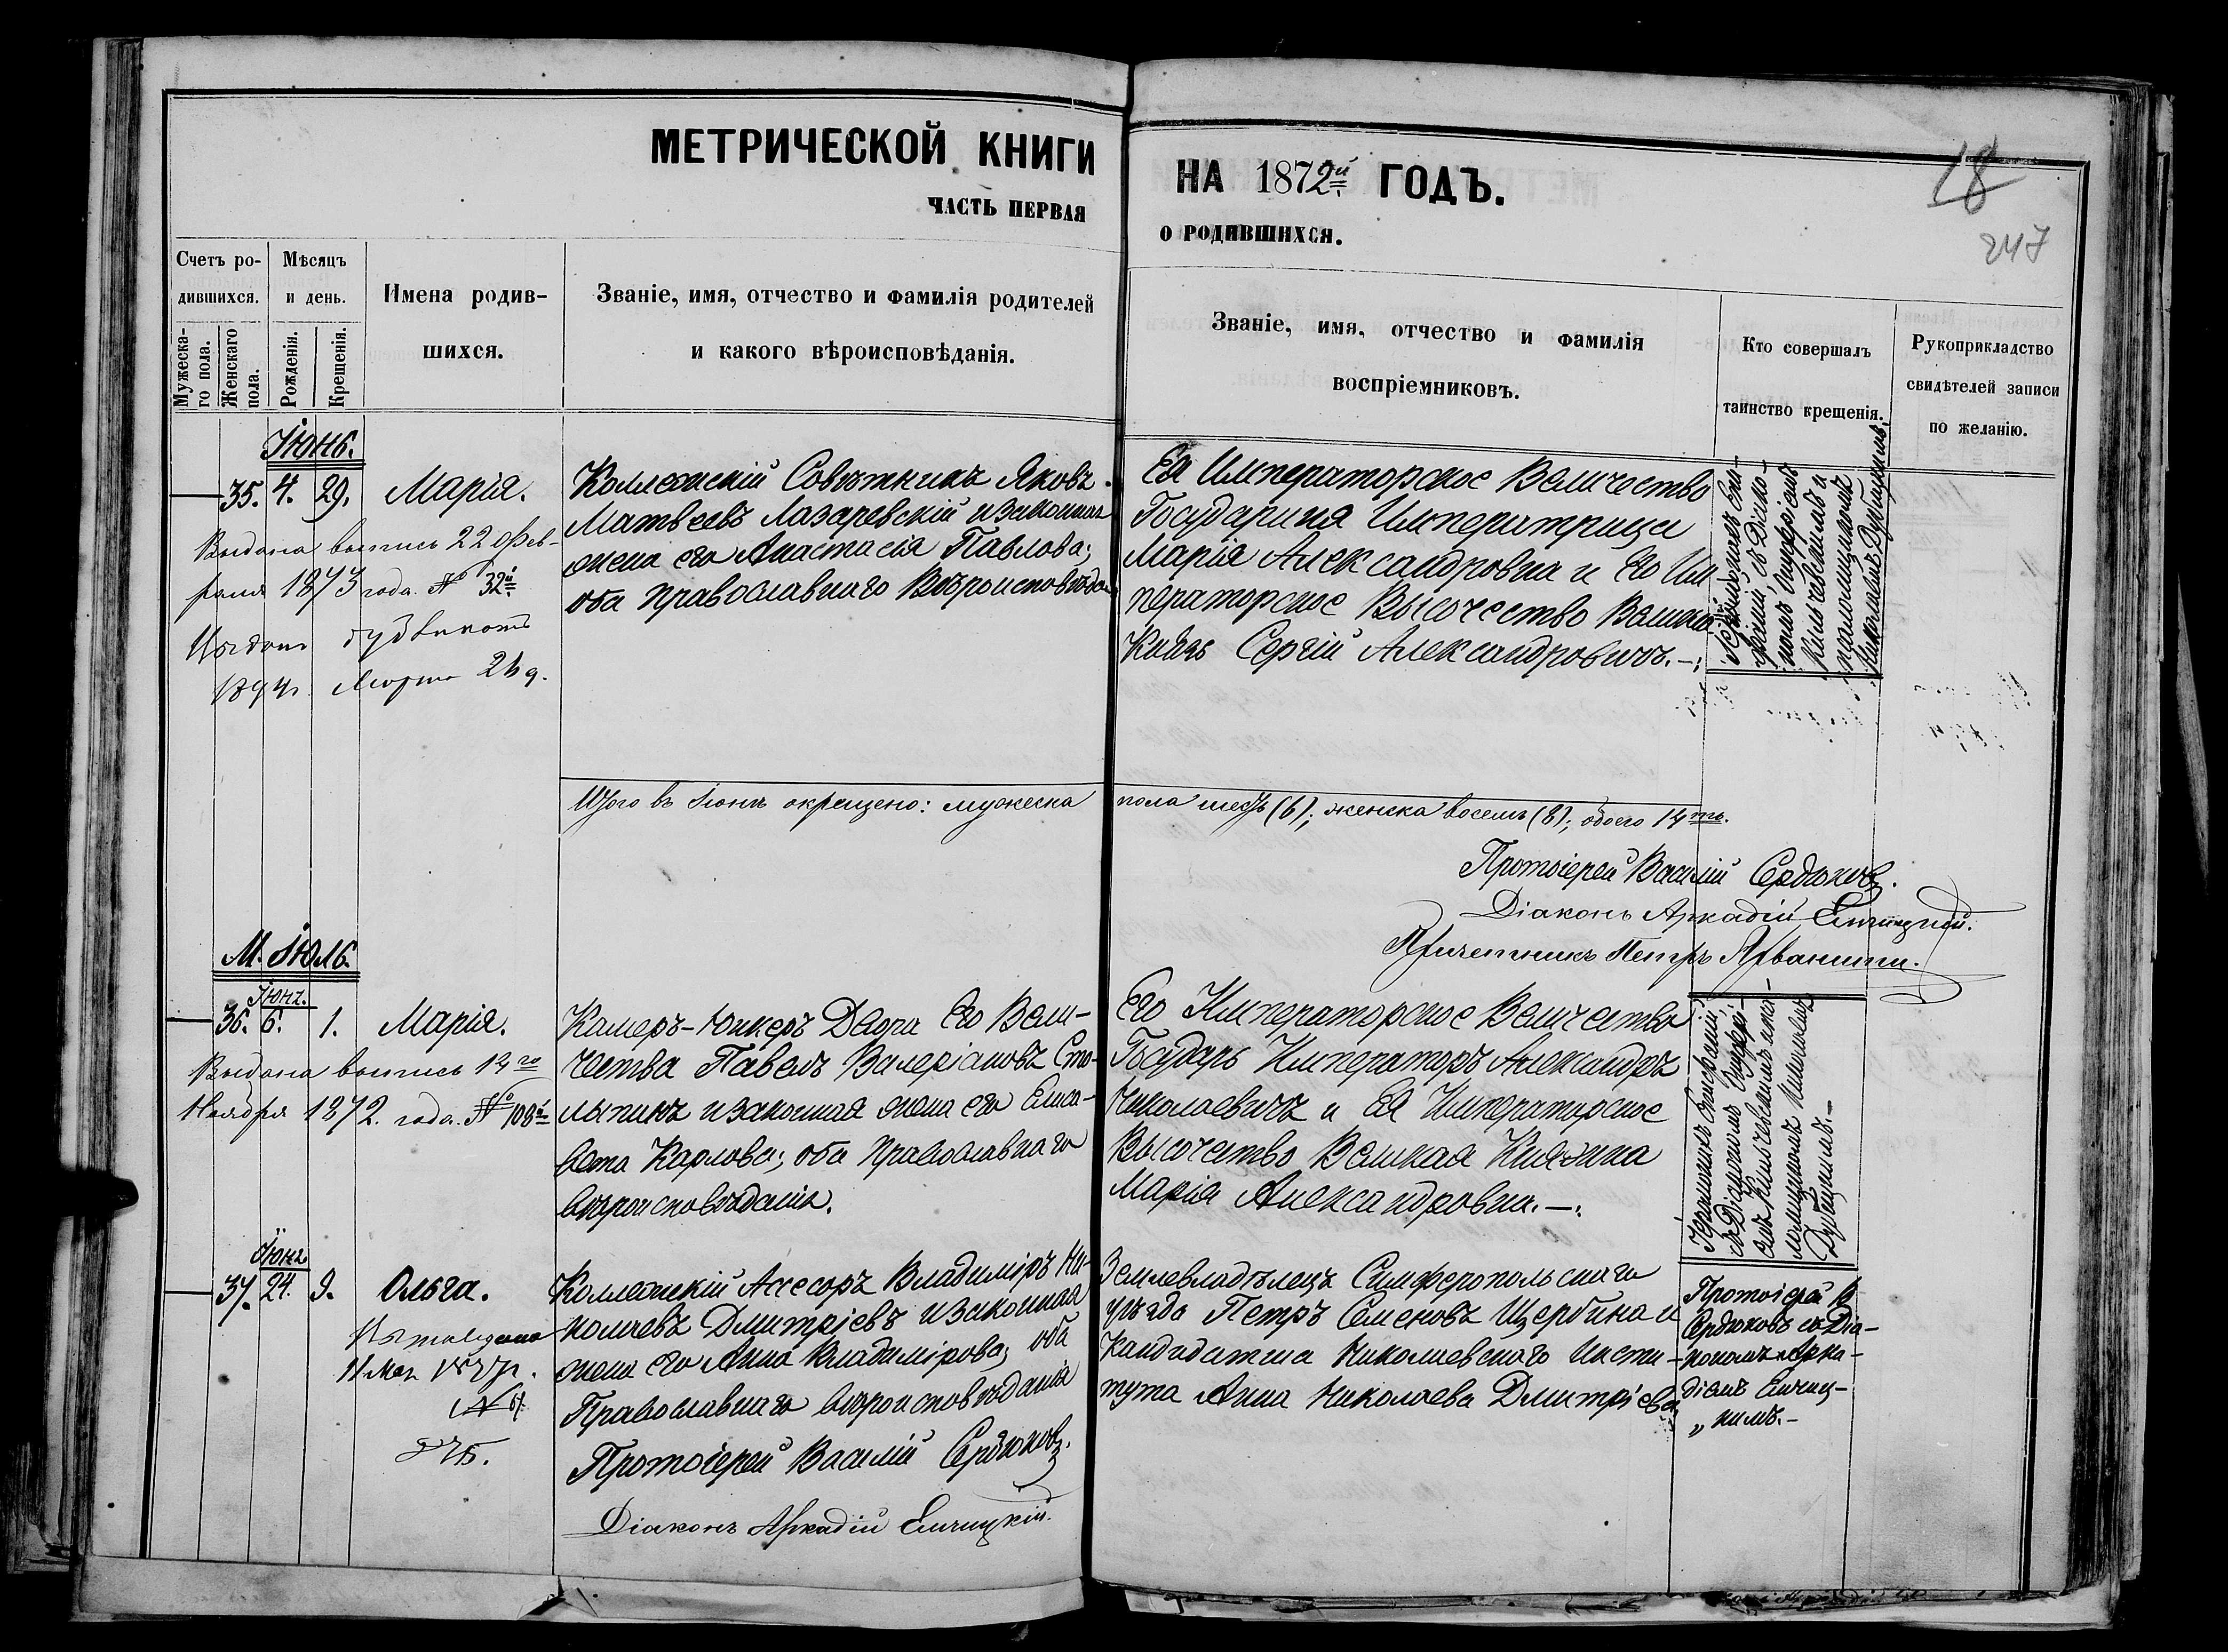 МЕТРИЧЕСКОЙ КНИГИ
ЧАСТЬ ПЕРВАЯ
НА 1872й ГОДЪ.
О РОДИВШИХСЯ.
18
247
Счетъ ро-
дившихся.
Мужеска-
го пола.
Женскаго
пола.
Мѣсяцъ
и день.
Рожденія.
Крещенія.
Имена родив-
шихся.
Званіе, имя, отчество и фамилія родителей
и какого вѣроисповѣданія.
Званіе, имя, отчество и фамилія
воспріемниковъ.
Кто совершалъ
таинство крещенія.
Рукоприкладство
свидѣтелей записи
по желанію.
Іюнь.
35. 4. 29. Марія.
Выдана выпись 22 Фев-
раля 1873 года. № 32й
Коллежскій Совѣтникъ Яковъ
Матвеевъ Лазаревскій и законная
жена его Анастасія Павлова;
оба православнаго Вѣроисповѣда
Ея Императорское Величество
Государыня Императрица
Марія Александровна и Его Им-
ператорское Высочество Великій
Князь Сергій Александровичъ.—
Итого въ Іюнѣ окрещено: мужеска пола шесть (6); женска восемь (8); обоего 14ть.
Протоіерей Василій Сердюковъ.
Діаконъ Аркадій
Причетникъ Петръ
М. Іюль.
Іюня.
36. 6. 1. Марія.
Выдана выпись 14го
Ноября 1872 года. № 108й
Камеръ-Юнкеръ Двора Его Вели-
чества Павелъ Валеріановъ Сто-
лыпинъ и законная жена его Елиса-
вета Карлова; оба Православнаго
вѣроисповѣданія.
Его Императорское Величество
Государь Императоръ Александръ
Николаевичъ и Ея Императорское
Высочество Великая Княжна
Марія Александровна.—
Іюня
37. 24. 9. Ольга.
Коллежскій Ассесоръ Владиміръ Ни-
колаевъ Дмитріевъ и законная
жена его Анна Владимірова; оба
Православнаго вѣроисповѣданія
Землевладѣлецъ Симферопольскаго
уѣзда Петръ Семеновъ Щербина и
Кандидатша Николаевскаго Инсти-
тута Анна Николаева Дмитріева
Протоіерей В
Сердюковъ съ Діа-
кономъ Арка-
діемъ
Протоіерей Василій Сердюковъ.
Діаконъ Аркадій